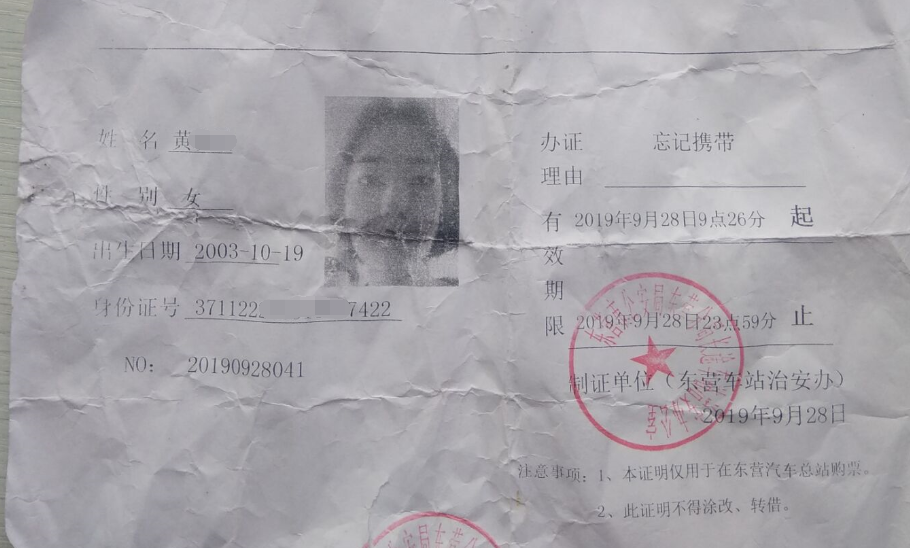 姓 名 黄
性 别 女
出生日期 2003-10-19
身份证号 371122 7422
NO: 20190928041
办证 忘记携带
理由
有 2019年9月28日9点26分 起
效
期
限 2019年9月28日23点59分 止
制证单位（东营车站治安办）
2019年9月28日
注意事项：1、本证明仅用于在东营汽车总站购票。
2、此证明不得涂改、转借。